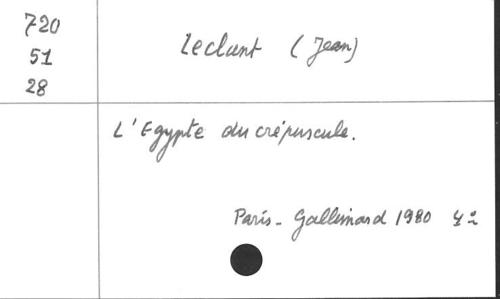 720
51
28
Leclant (Jean)
L'Egypte du crépuscule.
Paris - Gallimard 1980 4º